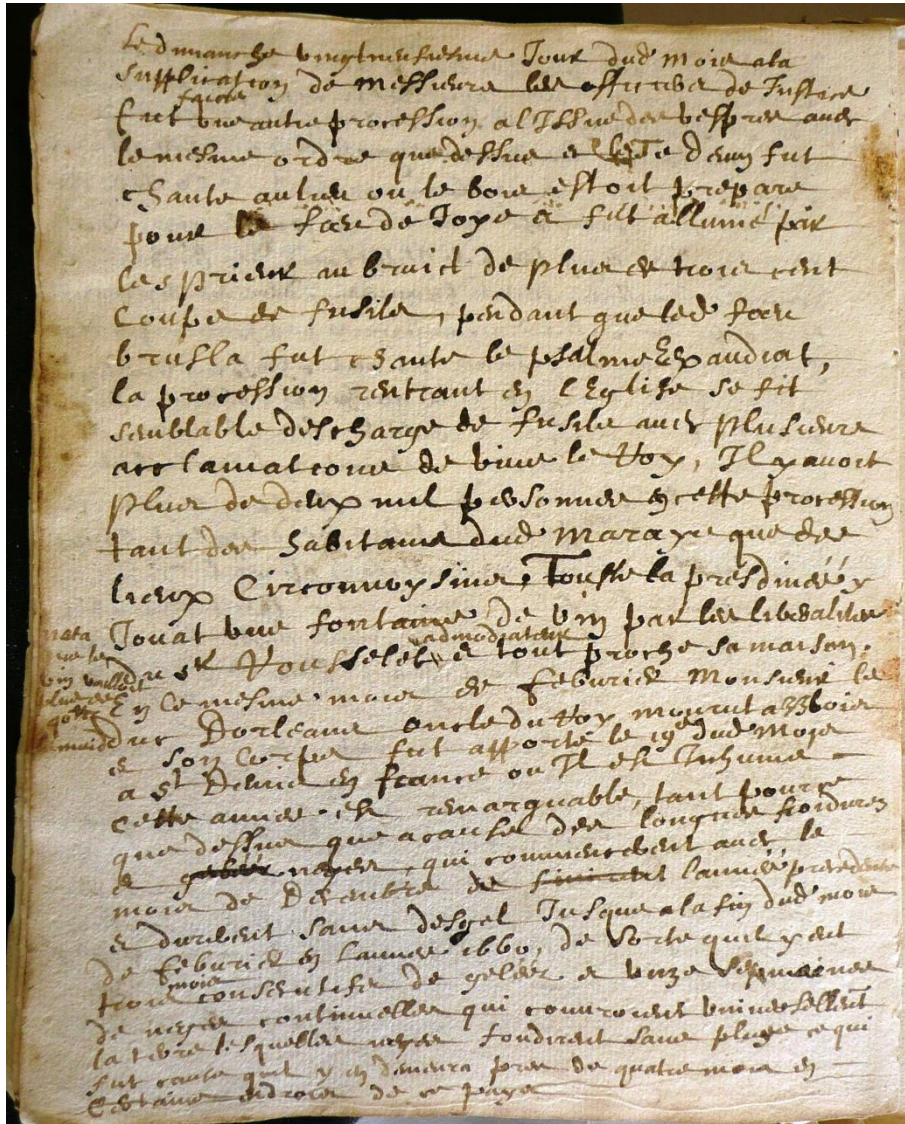 Le dimanche vingtneufiesme Jour dud mois a la
supplication de Messieurs les officiers de Justice
fut faicte une autre procession a l'Issue des vespres avec
le mesme ordre que dessus et le Te deum fut
chante au lieu ou le bois estoit prepare
pour le feu de Joye et fut allumé par
les prieur au bruict de plus de trois cent
Coups de fusils, pendant que led feu
brusla fut chante le psalme Exaudiat,
la procession rentrant en l'Eglise se fit
semblable descharge de fusils avec plusieurs
acclamations de vive le Roy, Il y avoit
plus de deux mil personnes en cette procession
tant des habitans dud Maraye que des
lieux Circonvoysins, Toutte la presdinée y
Jouat une fontaine de vin par les liberalites
du sr Rousselet admodiateur et tout proche sa maison.
nota
que le
vin valloit
plus de
muid
En ce mesme mois de feburier Monsieur le
duc Dorleans oncle du Roy mourut a Blois
et son Corps fut apporté le 19e dud Mois
a st Denis en france ou Il est Inhumé
Cette année est remarquable, tant pour ce
que dessus que a cause des longues froidures
et neges, qui commencerent avec le
mois de Decembre de l'année precedente
et durerent sans desgel Jusque a la fin dud mois
de feburier en l'annee 1660, de sorte quil y eut
trois mois consecutifs de gelées et unze sepmaines
de neges continuelles qui couvroient universellemt
la terre lesquelles neges fondirent sans pluye ce qui
fut cause quil y en demeura pres de quatre mois en
Certains endrois de ce pays